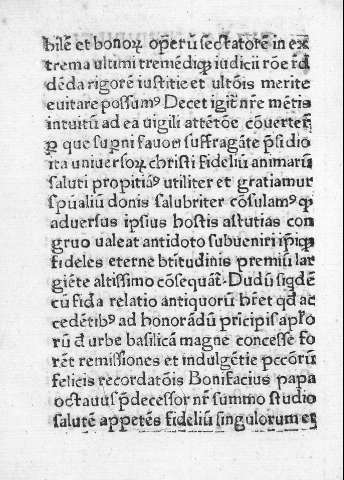 bilē et bonoꝝ opeꝝ ū sectatorē in ex
trema ultimi tremēdiqꝫ iudicii rōe r̄d
dēda rigorē iustitie et ultōis merite
euitare possumꝰ Decet igit̄ nr̄e mētis
intuitū ad ea uigili attētōe cōuerter̄
ꝑ que suꝑni fauoꝝ suffragāte p̄sidio
ita uniuersoꝝ christi fideliū animarū
saluti propitiāꝰ utiliter et gratiamur
sp̄ualiū donis salubriter cōsulamꝰ qꝫ
aduersus ipsius hostis astutias con
gruo ualeat antidoto subueniri ip̄iqꝫ
fideles eterne bt̄itudinis premiū lar
giēte altissimo cōsequāt̄. Dudū siqdē
cū fida relatio antiquorū hr̄et qd ac
cedētibꝰ ad honorādū prīcipis apl̄o
rū d̄ urbe basilicā magne concesse fo
rēt remissiones et indulgētie pccōrū
felicis recordatōis Bonifacius papa
octauus p̄decessor nr̄ summo studio
salutē appetēs fideliū singulorum et